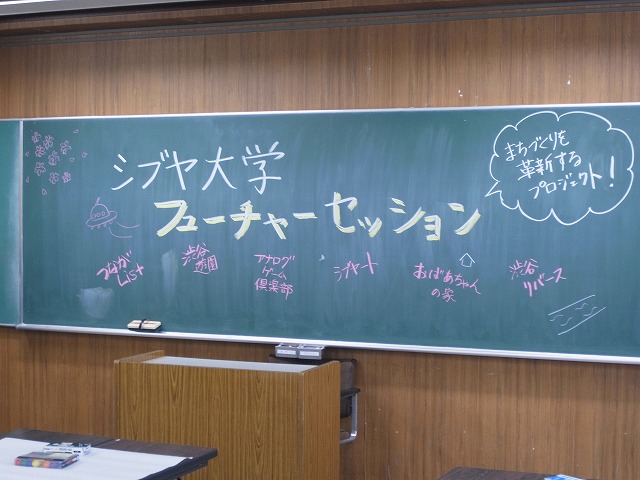 シブヤ大学
フューチャーセッション
まちづくりを
革新する
プロジェクト!
つなが
List
渋谷
遊園
アナログ
ゲーム
倶楽部
ジャート
おばあちゃん
の家
渋谷
リバース